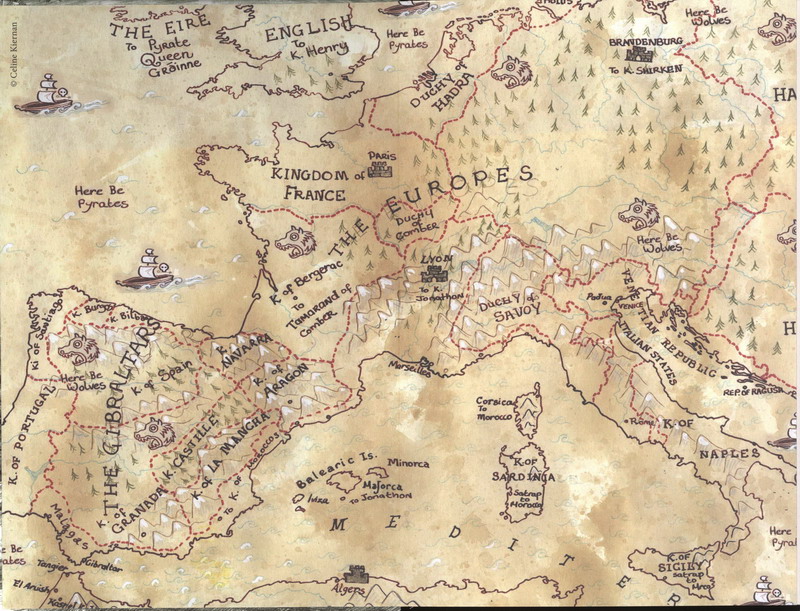 © Celine Kiernan
THE EIRE
To Pyrate
Queen
Gráinne
ENGLISH
To
K. Henry
Here Be
Pyrates
DUCHY of
HADRA
Here Be
Wolves
BRANDENBURG
To K. SHIRKEN
HA
Here Be
Pyrates
KINGDOM of
FRANCE
PARIS
THE EUROPES
DUCHY
of
COMBER
K. of Bergerac
To
Tamarand of
Comber
LYON
To K.
Jonathon
DUCHY of
SAVOY
Here Be
Wolves
Padua
VENICE
VENETIAN REPUBLIC
ITALIAN STATES
REP. of RAGUSA
H
Marseilles
K. of Santiago
K. Burgos
K. Bilbao
K. NAVARRA
K. of
ARAGON
Here Be
Wolves
K. of Spain
THE GIBRALTARS
K. of PORTUGAL
K. CASTILLE
K. of LA MANCHA
To K. of Morocco
K. of
GRANADA
Malaga
Corsica
To
Morocco
K. OF
SARDINIA
Satrap
to
Morocco
Rome
K. OF
NAPLES
Balearic Is.
Minorca
Majorca
To Jonathon
Ibiza
MEDITER
K. OF
SICILY
satrap
to
Here
Pyrat
e Be
ates
Tangier
Gibraltar
El Araish
Algers